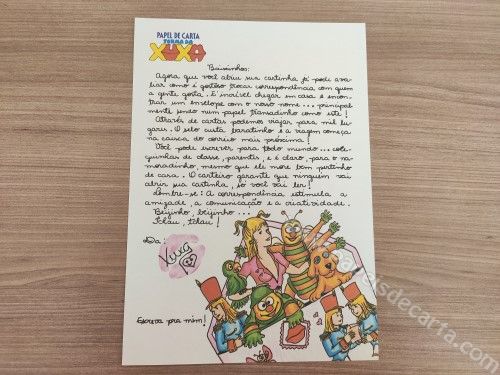 PAPEL DE CARTA
TURMA DA
XUXA
Baixinhos:
Agora que você abriu sua cartinha já pode ava-
liar como é gostoso trocar correspondência com quem
a gente gosta. É incrível chegar em casa e encon-
trar um envelope com o nosso nome... principal-
mente sendo num papel transadinho como este!
Através de cartas podemos viajar para mil lu-
gares. O selo custa baratinho e a viagem começa
na caixa do correio mais próxima!
Você pode escrever para todo mundo... cole-
guinhas de classe, parentes, e é claro, para o na-
moradinho, mesmo que ele more bem pertinho
de casa. O carteiro garante que ninguém vai
abrir sua cartinha, só você vai ler!
Lembre-se: A correspondência estimula a
amizade, a comunicação e a criatividade.
Beijinho, beijinho...
tchau, tchau!
Da:
Xuxa
Escreva pra mim!
papeisdecarta.com